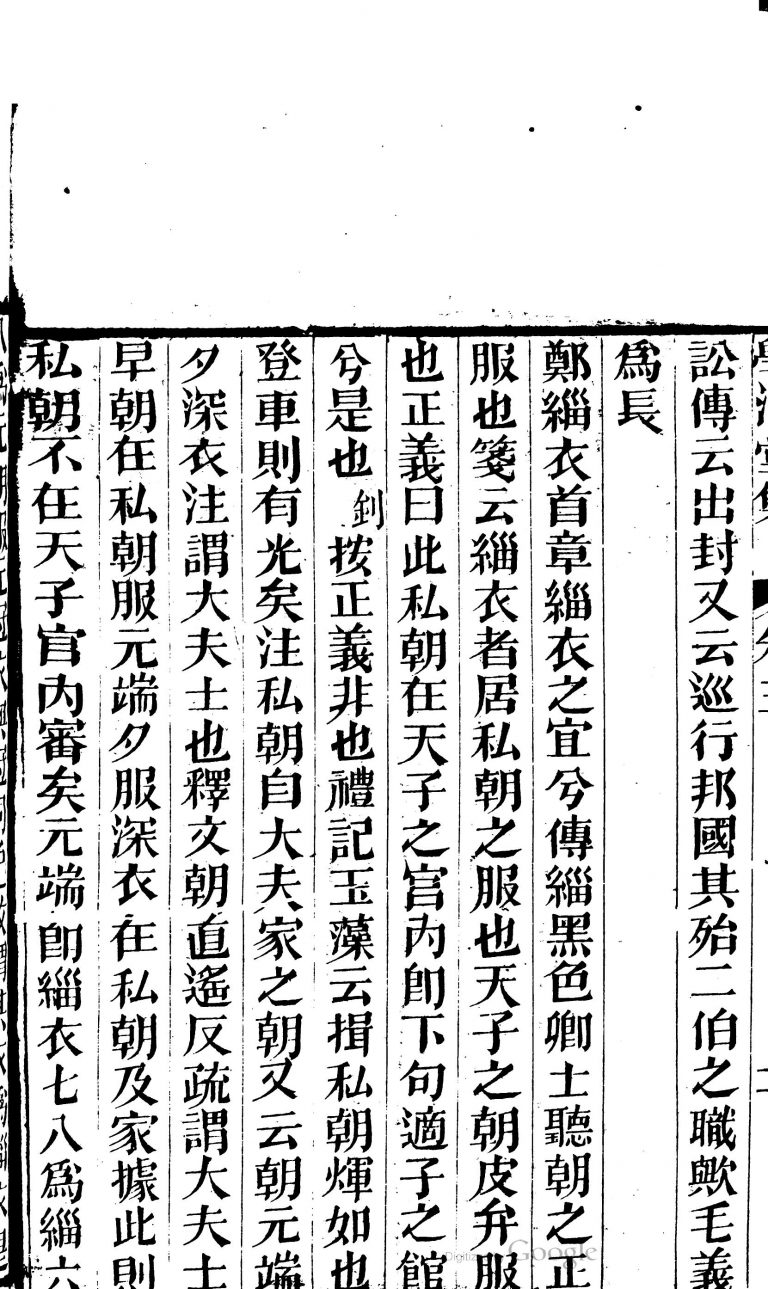 訟傳云出封又云巡行邦國其殆二伯之職歟毛義
為長
鄭緇衣首章緇衣之宜兮傳緇黑色卿士聽朝之正
服也箋云緇衣者居私朝之服也天子之朝皮弁服
也正義曰此私朝在天子之宮內卽下句適子之館
兮是也釗按正義非也禮記玉藻云揖私朝煇如也
登車則有光矣注私朝自大夫家之朝又云朝元端
夕深衣注謂大夫士也釋文朝直遙反疏謂大夫士
早朝在私朝服元端夕服深衣在私朝及家據此則
私朝不在天子宮內審矣元端卽緇衣七八爲緇六
Digitized by Google